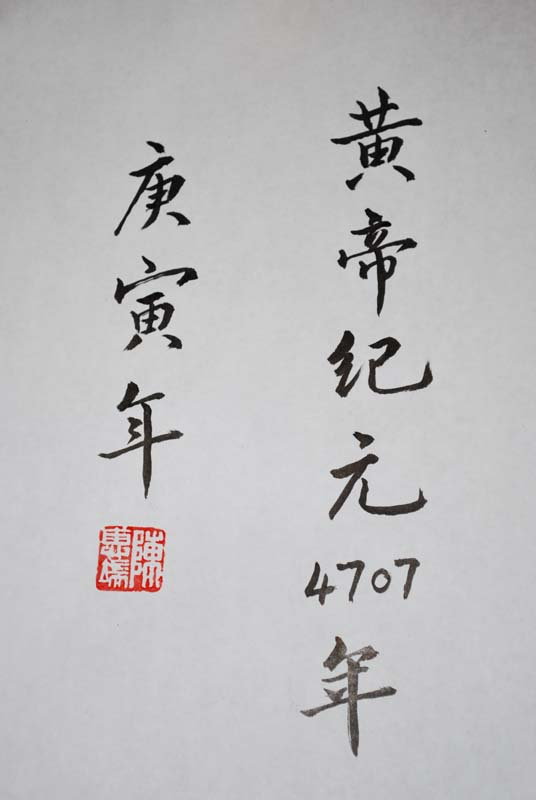 黄帝纪元4707年
庚寅年